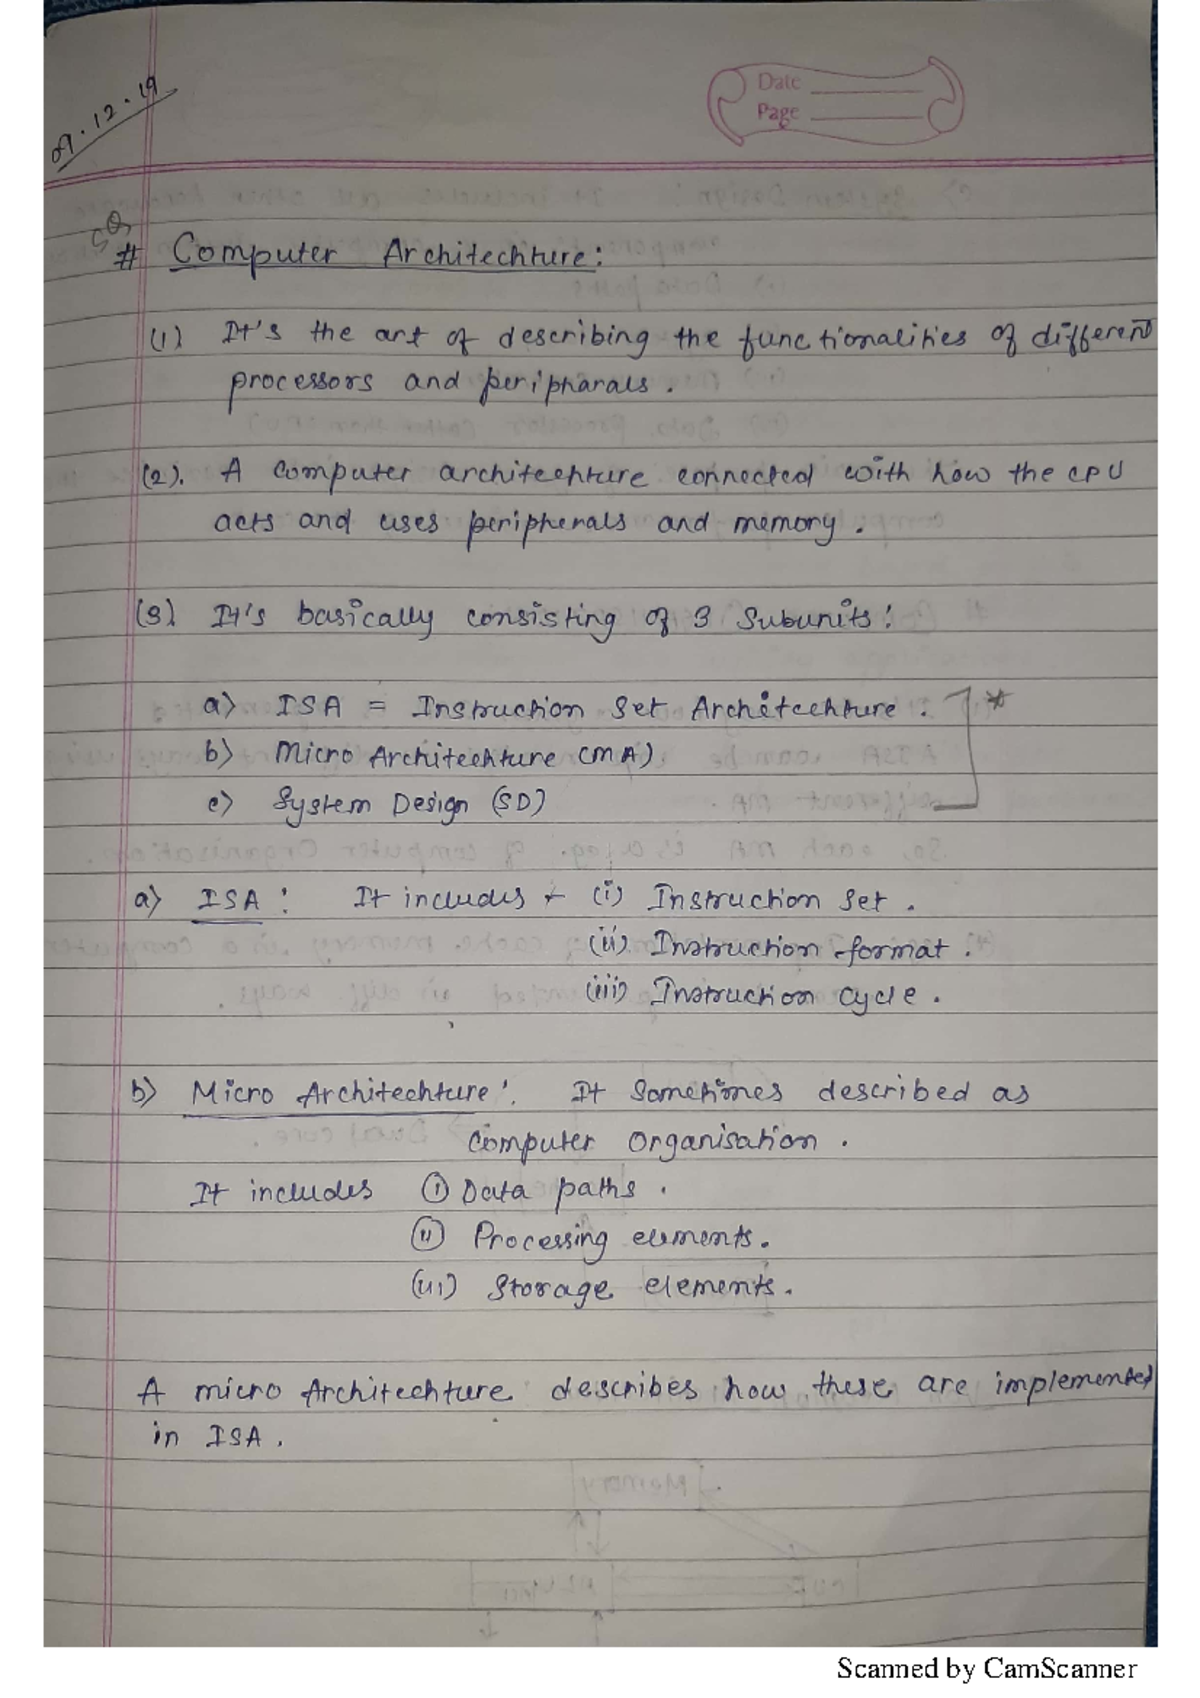 09.12.19
Date
Page
# Computer Architechture:
(1) It's the art of describing the functionalities of different
processors and peripharals.
(2). A computer architechture connected with how the CPU
acts and uses peripherals and memory.
(3) It's basically consisting of 3 Subunits:
a) ISA = Instruction Set Architechture. *
b) Micro Architechture (MA).
c) System Design (SD)
a) ISA: It includes + (i) Instruction Set.
(ii) Instruction format.
(iii) Instruction Cycle.
b) Micro Architechture: It Sometimes described as
Computer Organisation.
It includes (i) Data paths.
(ii) Processing elements.
(iii) Storage elements.
A micro Architechture describes how these are implemented
in ISA.
Scanned by CamScanner